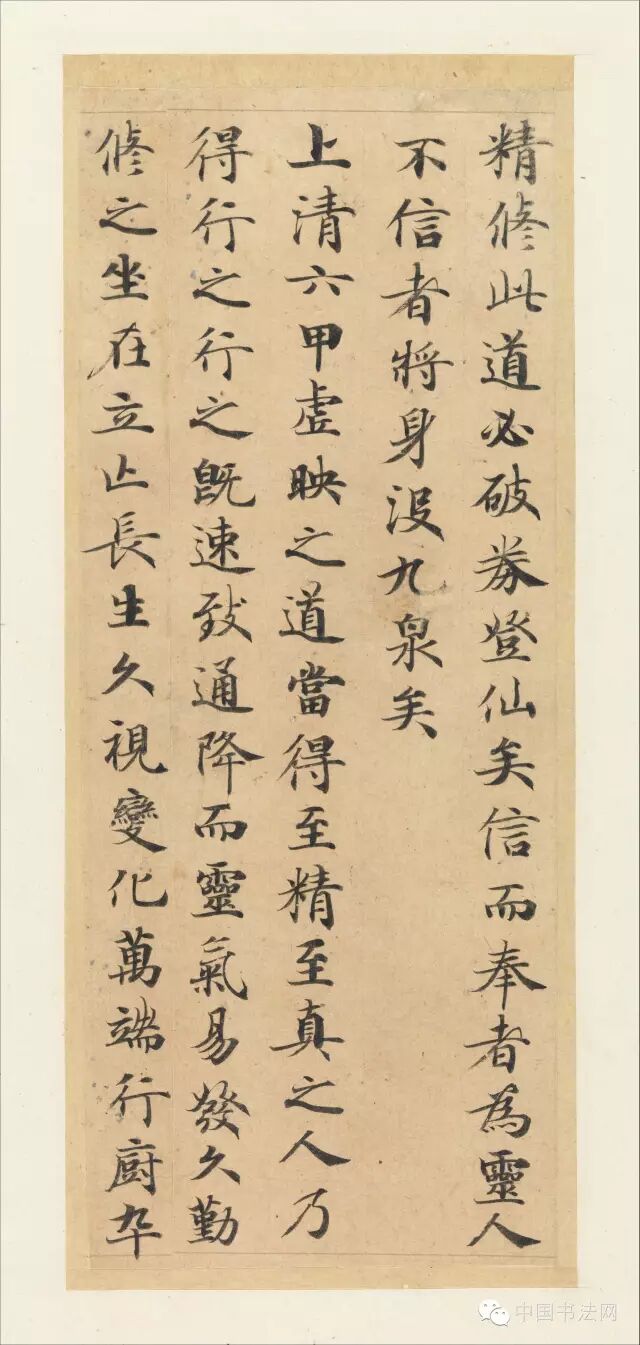 精修此道必破券登仙矣信而奉者為靈人
不信者將身没九泉矣
上清六甲虛映之道當得至精至真之人乃
得行之行之既速致通降而靈氣易發久勤
修之坐在立亾長生久視變化萬端行廚卒
中国书法网